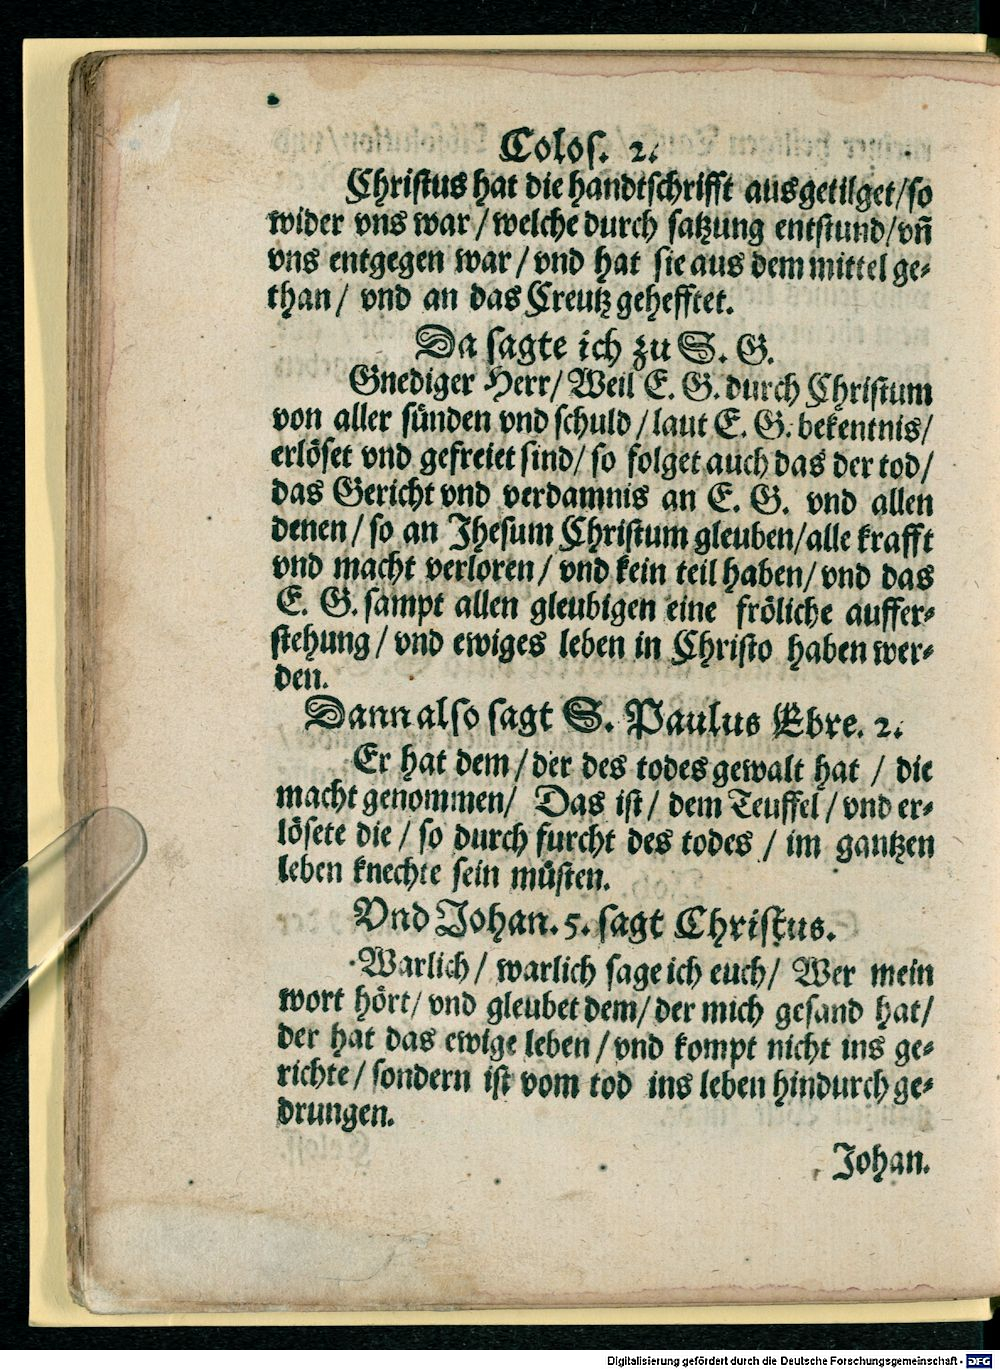 Colos. 2.
Christus hat die handtschrifft ausgetilget/so
wider vns war / welche durch satzung entstund/vñ
vns entgegen war / vnd hat sie aus dem mittel ge-
than / vnd an das Creutz gehefftet.
Da sagte ich zu S. G.
Gnediger Herr/ Weil E. G. durch Christum
von aller sünden vnd schuld / laut E. G. bekentnis/
erlöset vnd gefreiet sind/ so folget auch das der tod/
das Gericht vnd verdamnis an E. G. vnd allen
denen / so an Jhesum Christum gleuben/alle krafft
vnd macht verloren/ vnd kein teil haben/ vnd das
E. G. sampt allen gleubigen eine fröliche auffer-
stehung / vnd ewiges leben in Christo haben wer-
den.
Dann also sagt S. Paulus Ebre. 2.
Er hat dem / der des todes gewalt hat / die
macht genommen/ Das ist / dem Teuffel / vnd er-
lösete die / so durch furcht des todes / im gantzen
leben knechte sein müsten.
Vnd Johan. 5. sagt Christus.
Warlich / warlich sage ich euch/ Wer mein
wort hört/ vnd gleubet dem/ der mich gesand hat/
der hat das ewige leben / vnd kompt nicht ins ge-
richte / sondern ist vom tod ins leben hindurch ge-
drungen.
Johan.
Digitalisierung gefördert durch die Deutsche Forschungsgemeinschaft - DFG